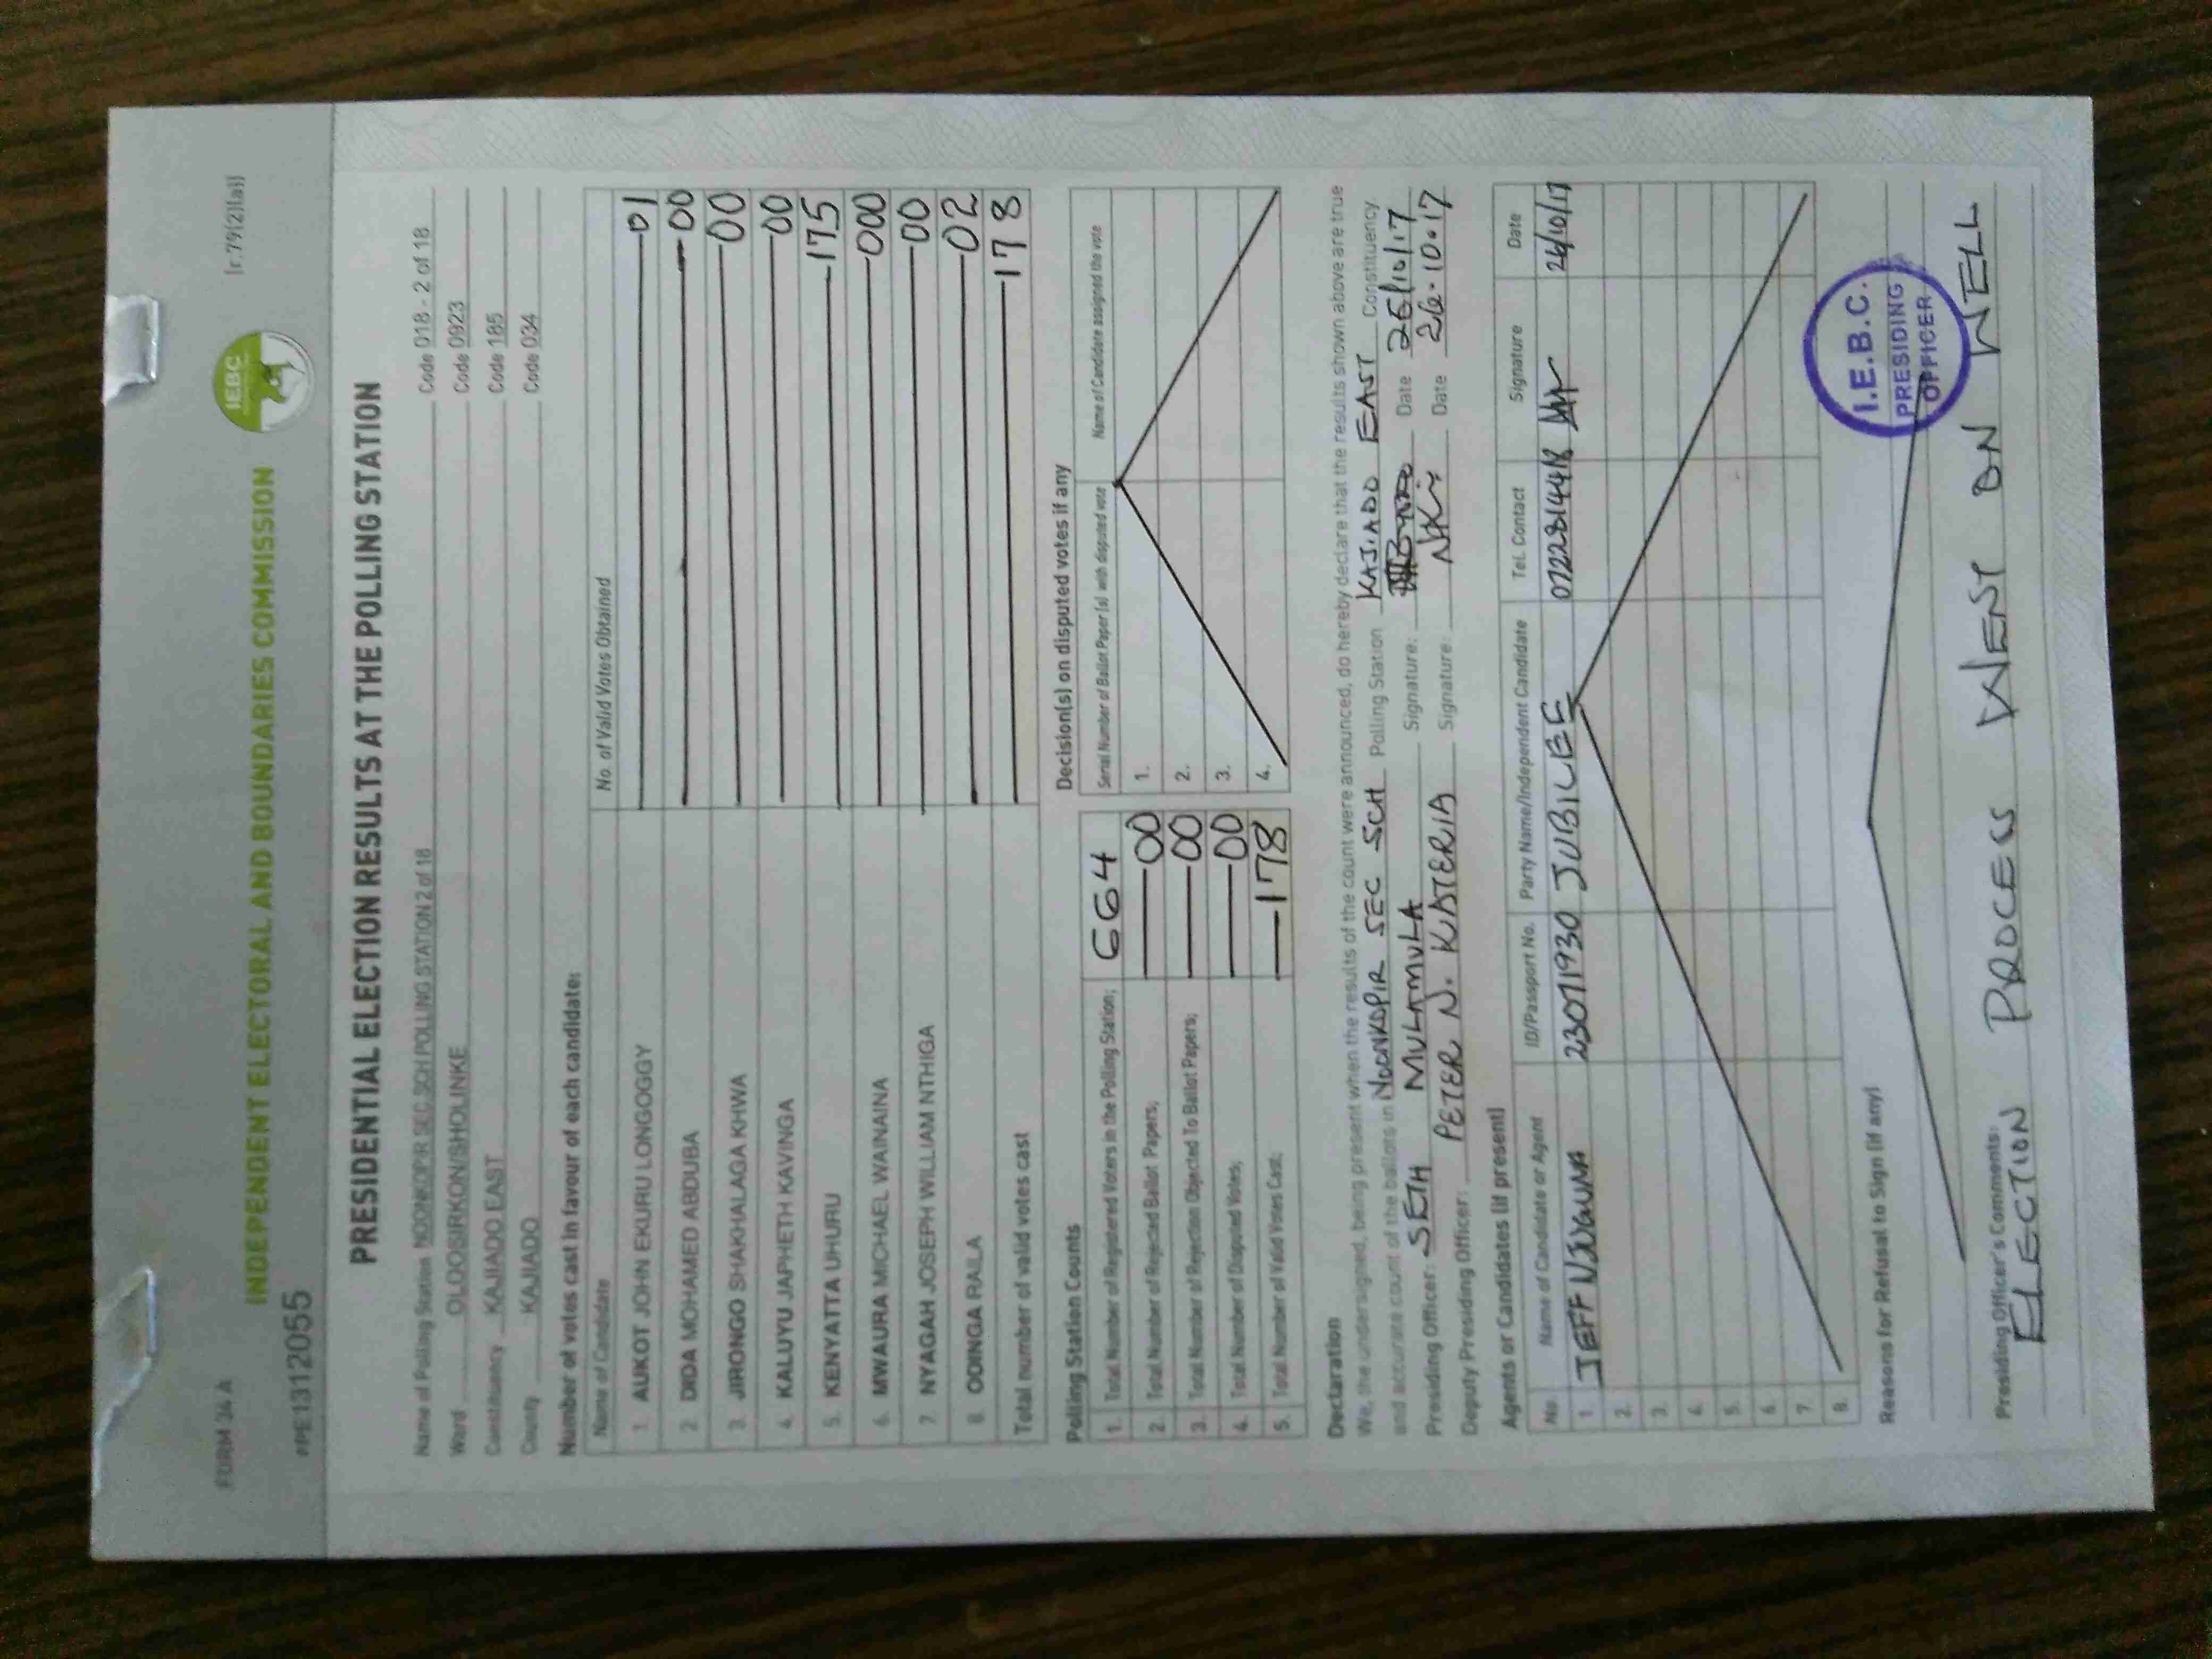 FORM 34 A
[r.79(2)(a)]
IEBC
INDEPENDENT ELECTORAL AND BOUNDARIES COMMISSION
PRE1312055
PRESIDENTIAL ELECTION RESULTS AT THE POLLING STATION
Name of Polling Station NOONKOPIR SEC SCH POLLING STATION 2 of 18 Code 018 - 2 of 18
Ward OLOOSIRKON/SHOLINKE Code 0923
Constituency KAJIADO EAST Code 185
County KAJIADO Code 034
Number of votes cast in favour of each candidate:
Name of Candidate No. of Valid Votes Obtained
1. AUKOT JOHN EKURU LONGOGGY 01
2. DIDA MOHAMED ABDUBA 00
3. JIRONGO SHAKHALAGA KHWA 00
4. KALUYU JAPHETH KAVINGA 00
5. KENYATTA UHURU 175
6. MWAURA MICHAEL WAINAINA 000
7. NYAGAH JOSEPH WILLIAM NTHIGA 00
8. ODINGA RAILA 02
Total number of valid votes cast 178
Polling Station Counts
1. Total Number of Registered Voters in the Polling Station; 664
2. Total Number of Rejected Ballot Papers; 00
3. Total Number of Rejection Objected To Ballot Papers; 00
4. Total Number of Disputed Votes; 00
5. Total Number of Valid Votes Cast; 178
Decision(s) on disputed votes if any
Serial Number of Ballot Paper (s) with disputed vote Name of Candidate assigned the vote
1.
2.
3.
4.
Declaration
We, the undersigned, being present when the results of the count were announced, do hereby declare that the results shown above are true
and accurate count of the ballots in NOONKOPIR SEC SCH Polling Station KAJIADO EAST Constituency.
Presiding Officer: SETH MULAMULA Signature: Date 26/10/17
Deputy Presiding Officer: PETER N. KATERIA Signature: Date 26.10.17
Agents or Candidates (if present)
No. Name of Candidate or Agent ID/Passport No. Party Name/Independent Candidate Tel. Contact Signature Date
1. JEFF 23071930 JUBILEE 0722814418 26/10/17
2.
3.
4.
5.
6.
7.
8.
Reasons for Refusal to Sign (if any)
I.E.B.C.
PRESIDING
OFFICER
Presiding Officer's Comments:
ELECTION PROCESS WENT ON WELL